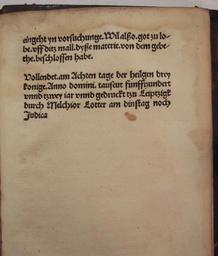 eingeht yn vorsuchunge. Wil alßo. got zu lo-
be. vff ditz mall. dyße materie. von dem gebe-
the. beschlossen habe.
Vollendet. am Achten tage der heilgen drey
konige. Anno domini. tauseut funffhundert
vnnd tzwey iar vnnd gedruckt tzu Leiptzigk
durch Melchior Lotter am dinstag noch
Judica